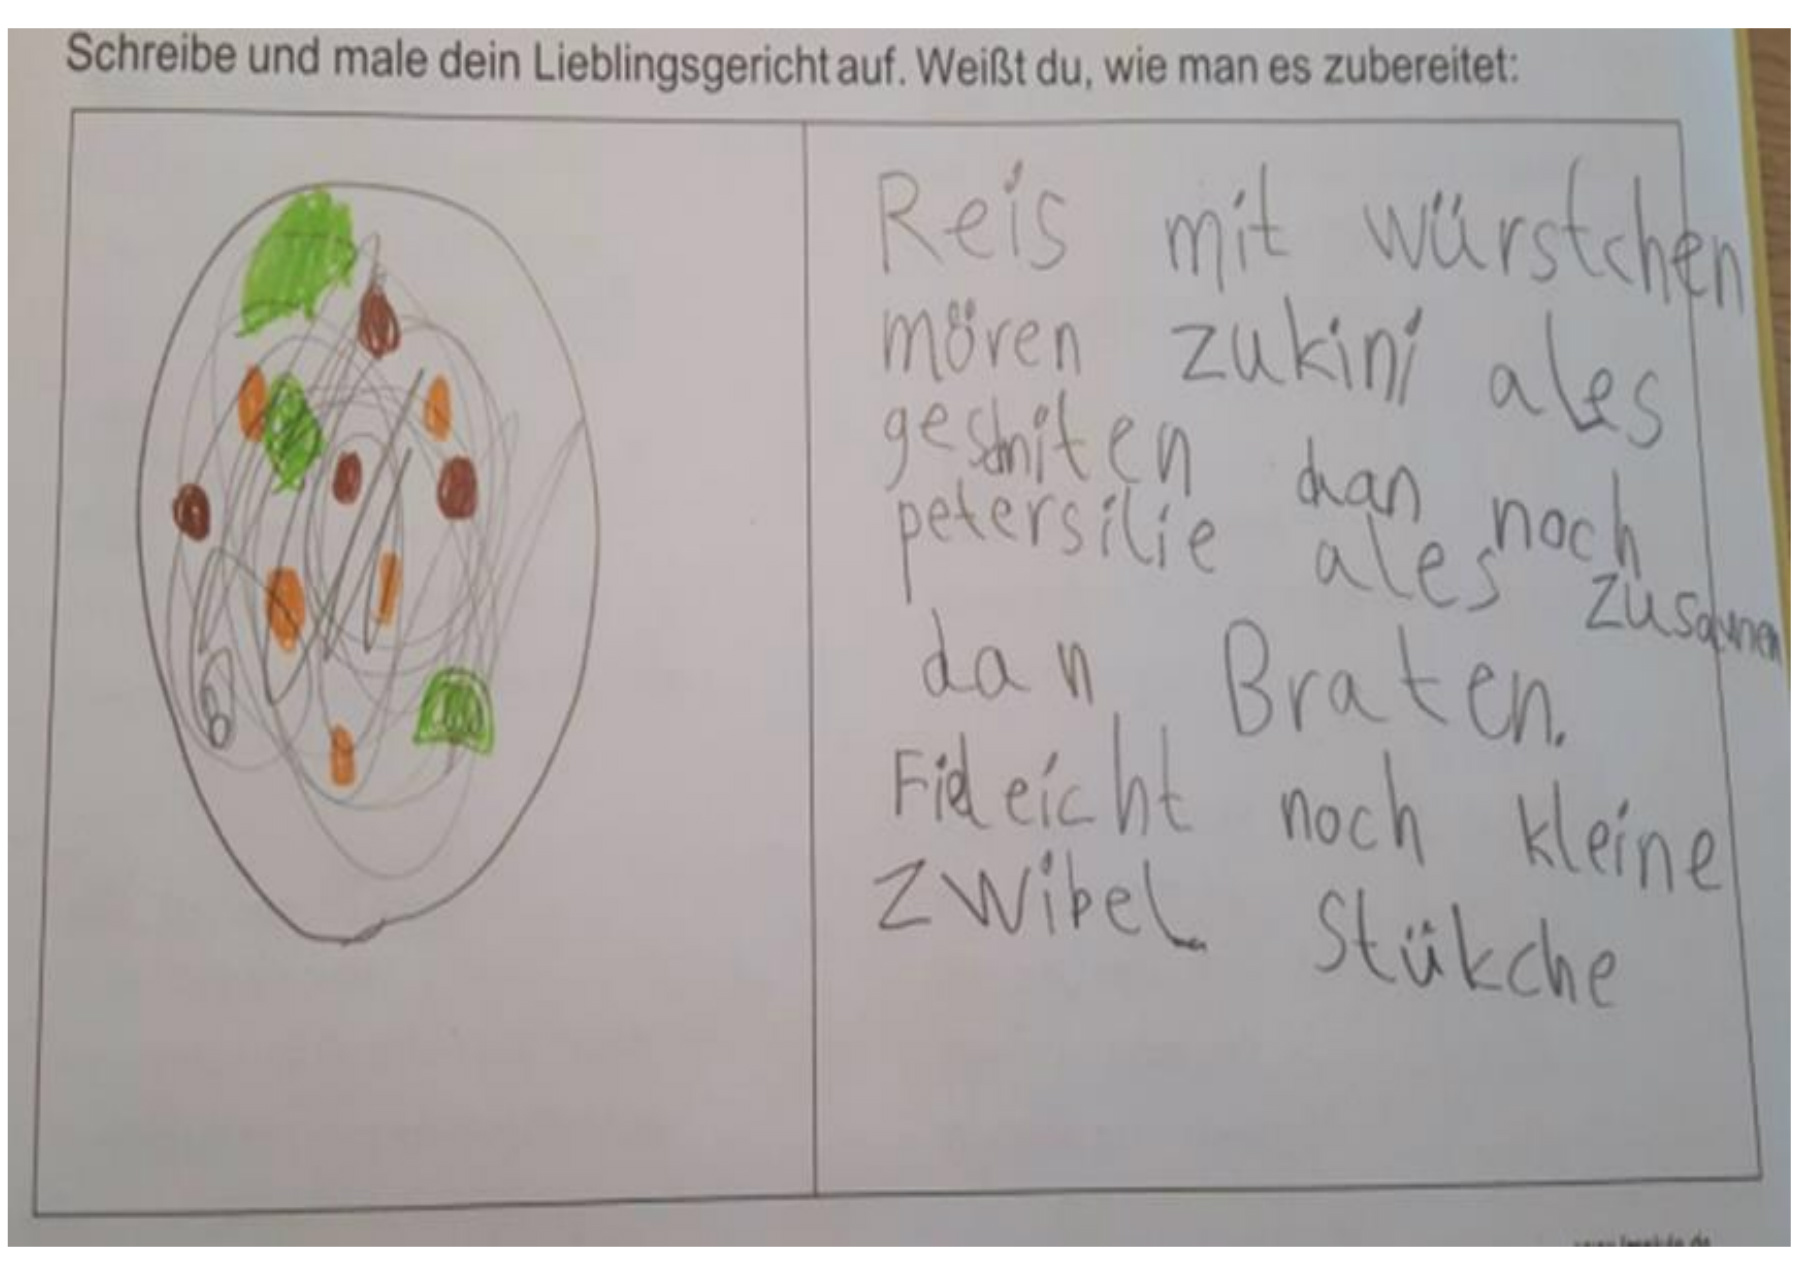 Schreibe und male dein Lieblingsgericht auf. Weißt du, wie man es zubereitet:
Reis mit würstchen
mören zukini ales
geschniten dan noch
petersilie ales zusammen
dan Braten.
Fieleicht noch kleine
zwibel Stükche